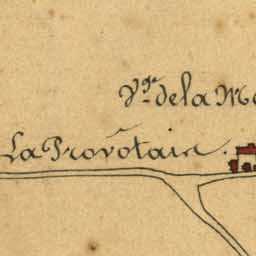 Vge. de la Mo
La Provotaie.